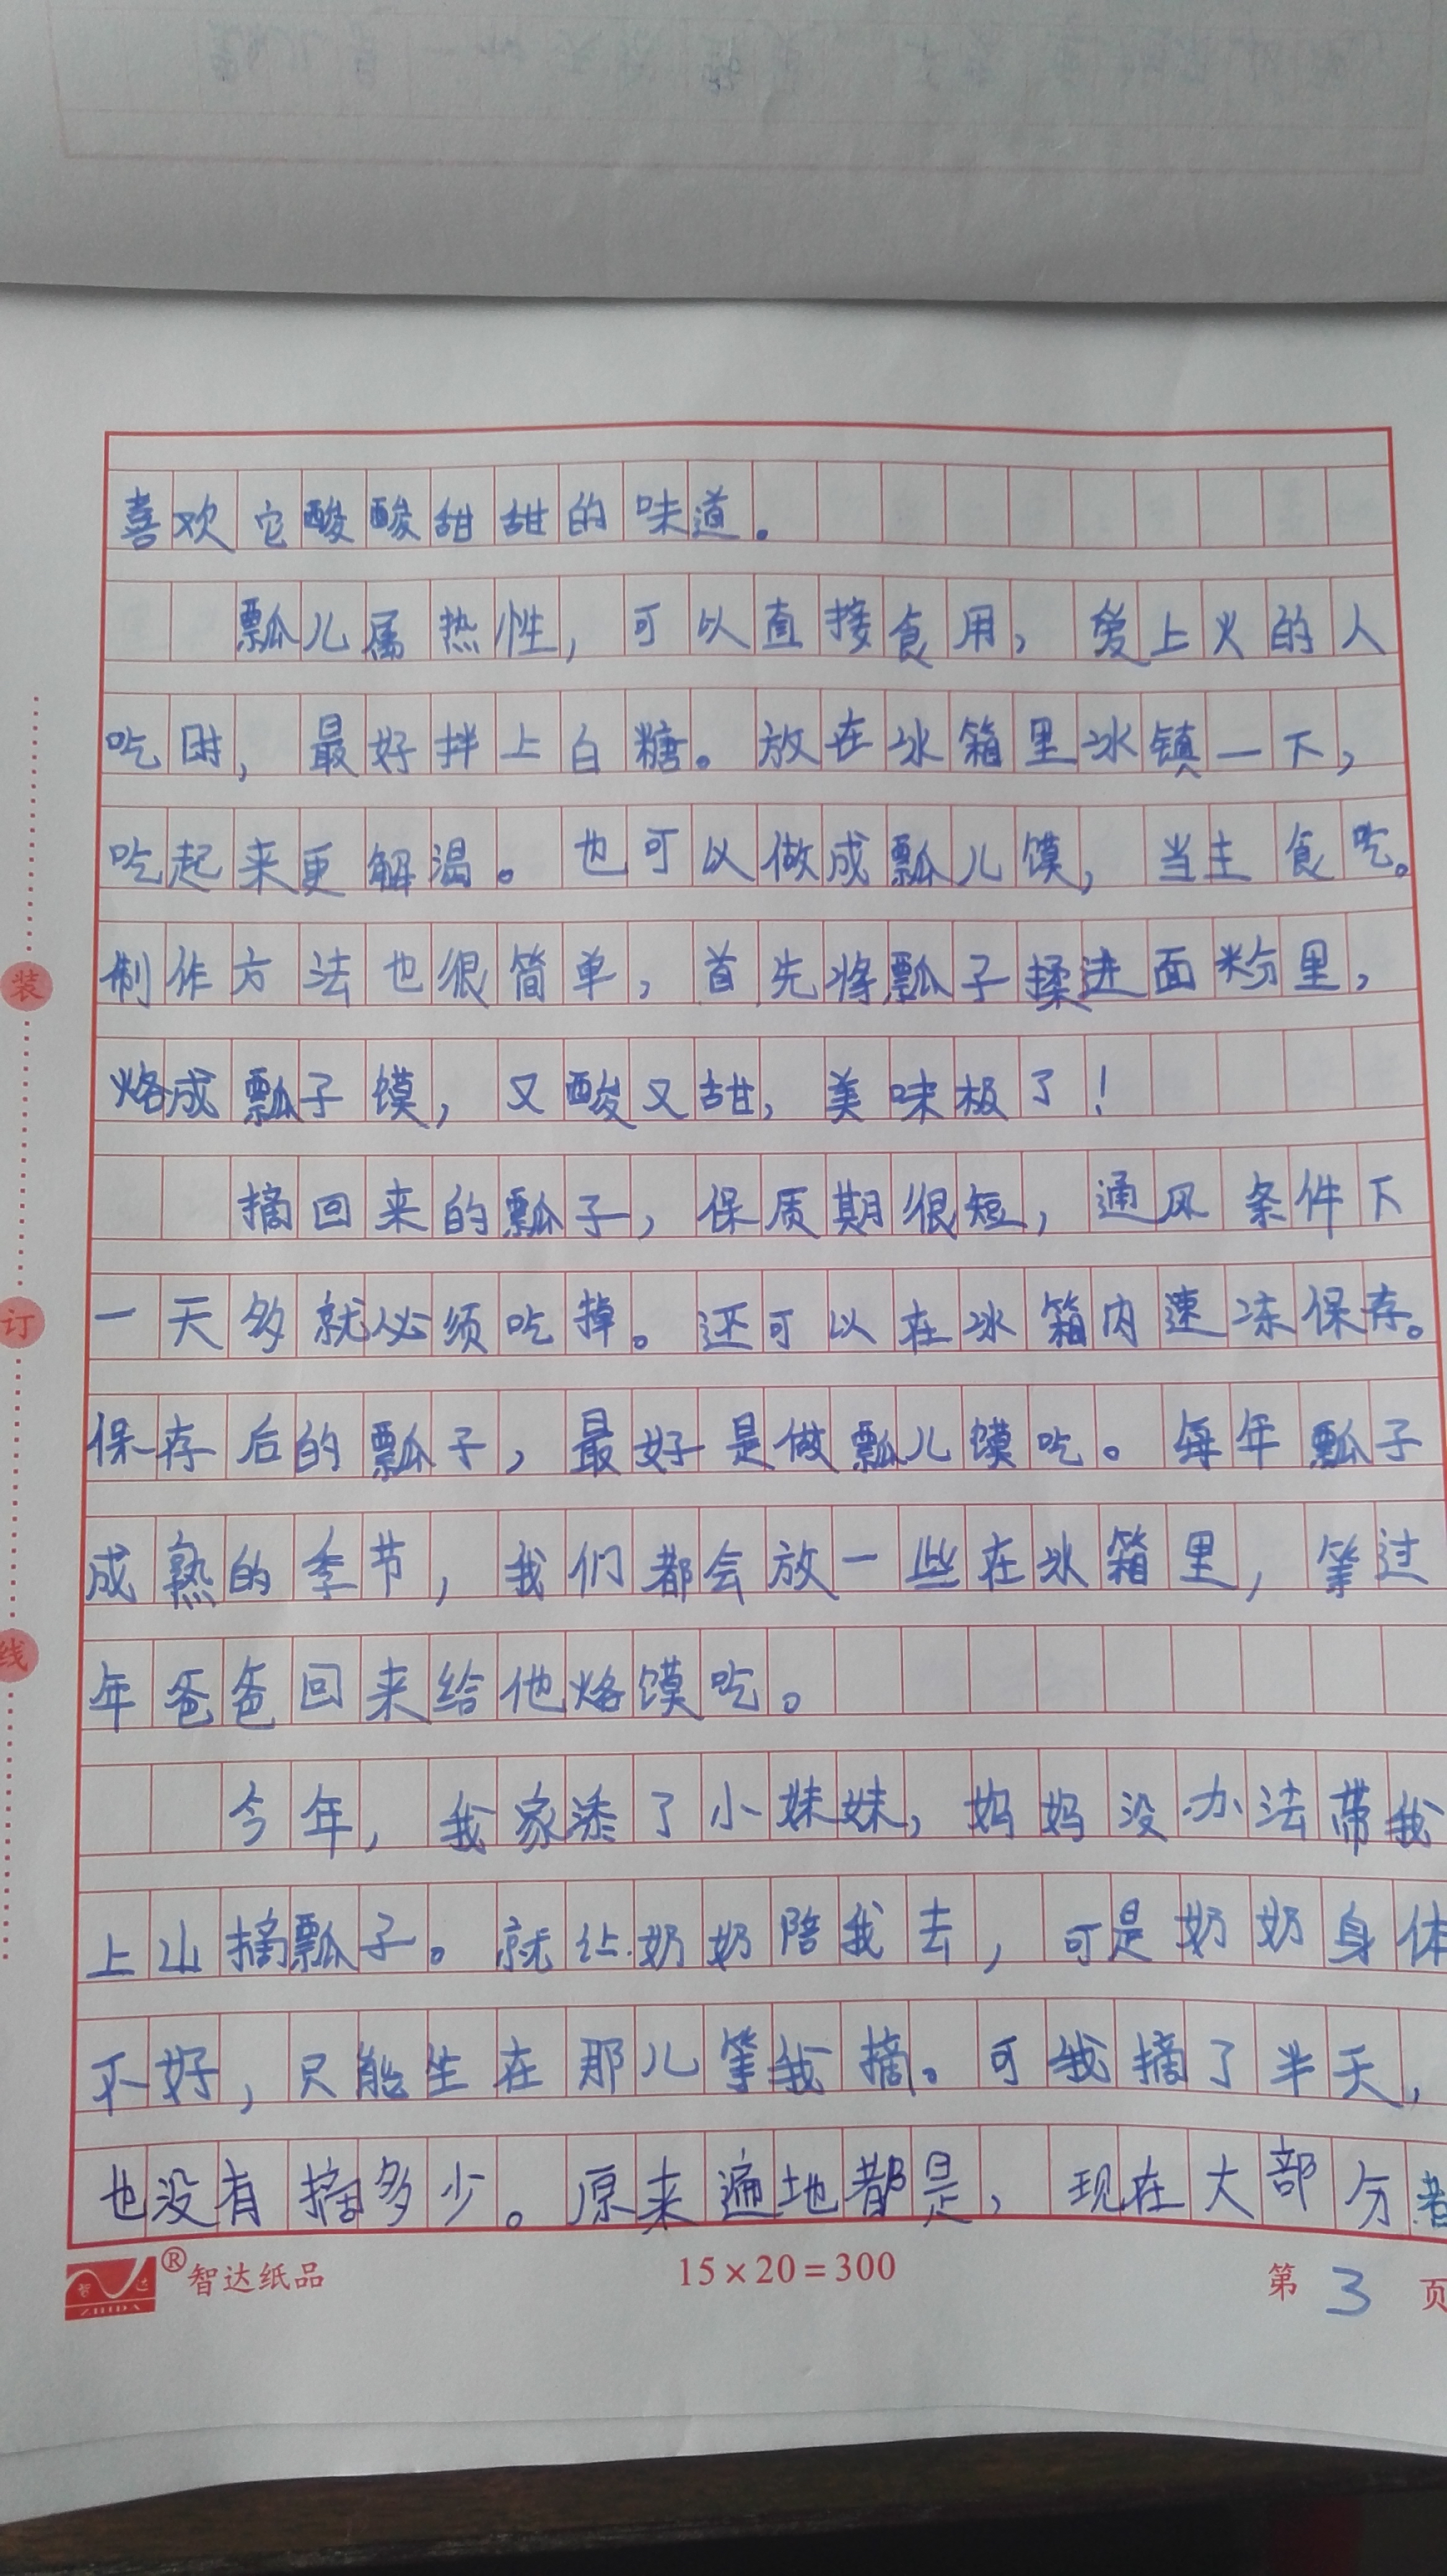 喜欢它酸酸甜甜的味道。
瓢儿属热性，可以直接食用，爱上火的人
吃时，最好拌上白糖。放在冰箱里冰镇一下，
吃起来更解温。也可以做成瓢儿馍，当主食吃。
制作方法也很简单，首先将瓢子揉进面粉里，
烙成瓢子馍，又酸又甜，美味极了！
摘回来的瓢子，保质期很短，通风条件下
一天多就必须吃掉。还可以在冰箱内速冻保存。
保存后的瓢子，最好是做瓢儿馍吃。每年瓢子
成熟的季节，我们都会放一些在冰箱里，等过
年爸爸回来给他烙馍吃。
今年，我家添了小妹妹，妈妈没办法带我
上山摘瓢子。就让奶奶陪我去，可是奶奶身体
不好，只能坐在那儿等我摘。可我摘了半天，
也没有摘多少。原来遍地都是，现在大部分者
装
订
线
智达 ZHIDA ®智达纸品
15×20=300
第 3 页